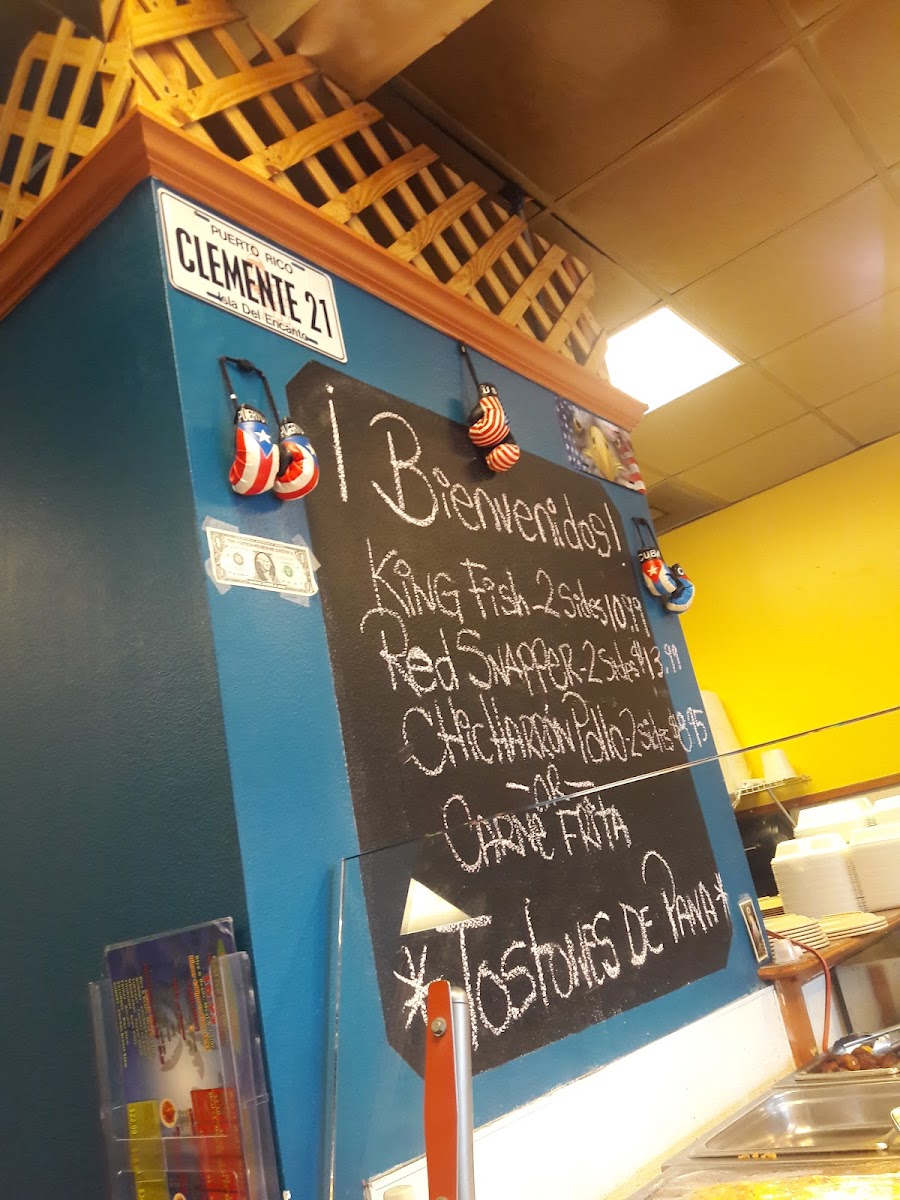 PUERTO RICO
CLEMENTE 21
Isla Del Encanto
PUERTO
CUBA
¡Bienvenidos!
King Fish-2 Sides 10.99
Red Snapper-2 Sides $13.99
Chicharrón Pollo-2 sides $8.95
-or-
Carne Frita
*Tostones de Pana*